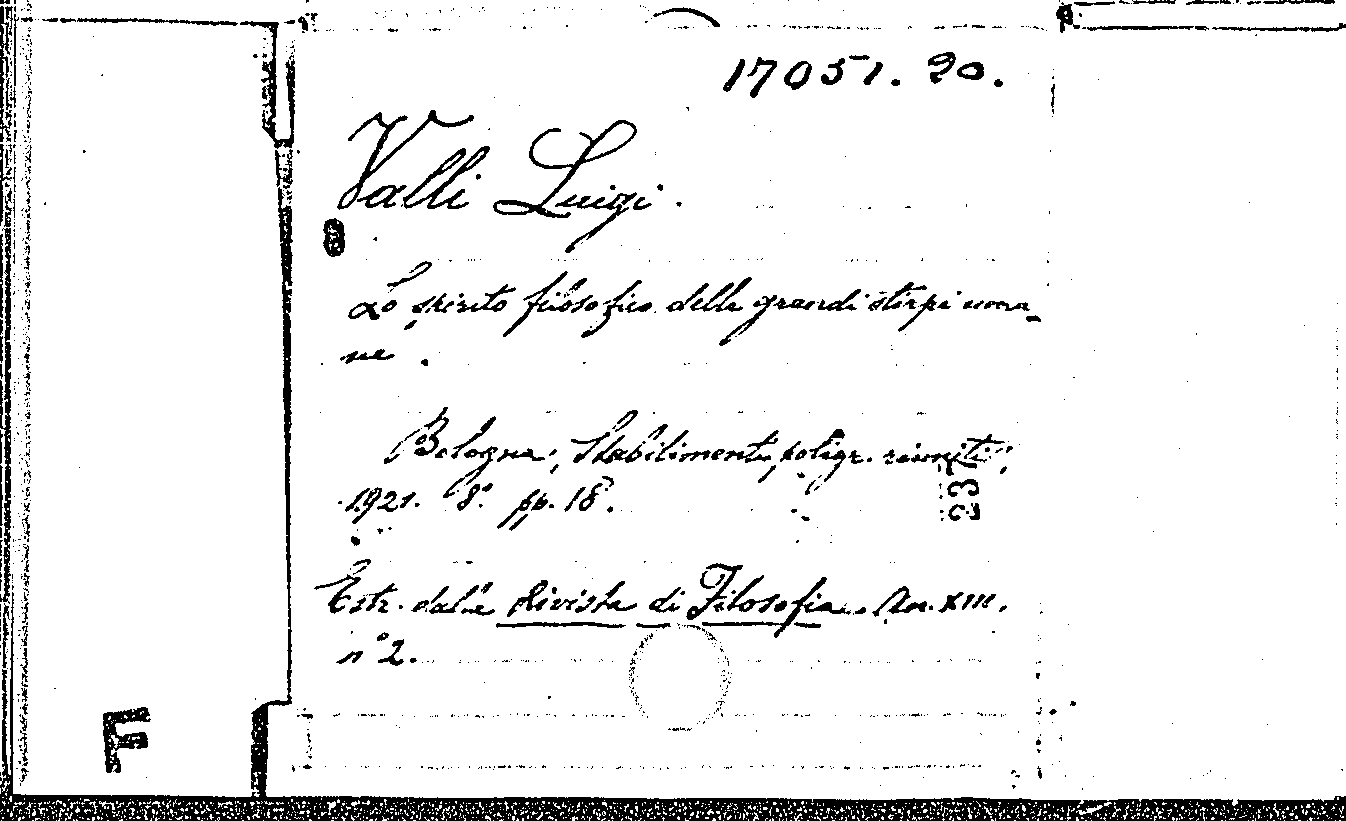 17051. 20.
Valli Luigi.
Lo spirito filosofico delle grandi stirpi uma-
ne.
Bologna, Stabilimenti poligr. riuniti,
237
1921. 8°. pp. 18.
Estr. dalla Rivista di Filosofia. An. XIII.
n° 2.
F